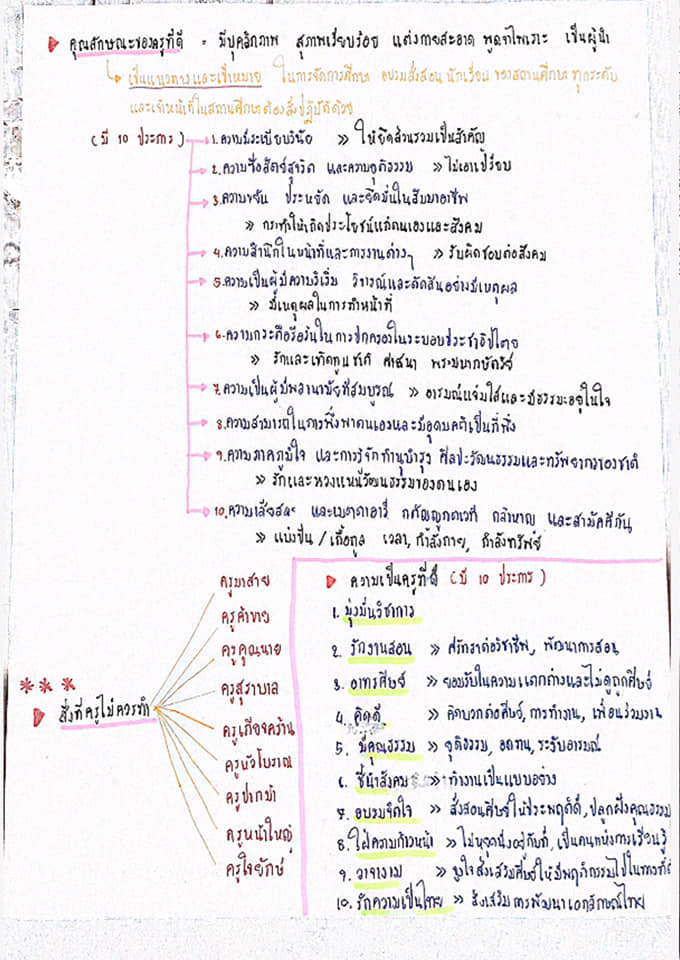 คุณลักษณะของครูที่ดี = มีบุคลิกภาพ สุภาพเรียบร้อย แต่งกายสะอาด พูดจาไพเราะ เป็นผู้นำ
เป็นแนวทางและเป้าหมาย ในการจัดการศึกษา อบรมสั่งสอน นักเรียน ของสถานศึกษา ทุกระดับ
และเจ้าหน้าที่ในสถานศึกษาต้องสั่งปฏิบัติด้วย
(มี 10 ประการ)
1.ความมีระเบียบวินัย » ให้ยึดส่วนรวมเป็นสำคัญ
2.ความซื่อสัตย์สุจริต และความยุติธรรม » ไม่เอาเปรียบ
3.ความขยัน ประหยัด และยึดมั่นในสัมมาอาชีพ
» กระทำให้เกิดประโยชน์แก่ตนเองและสังคม
4.ความสำนึกในหน้าที่และการงานต่างๆ » รับผิดชอบต่อสังคม
5.ความเป็นผู้มีความริเริ่ม วิจารณ์และตัดสินอย่างมีเหตุผล
» มีเหตุผลในการทำหน้าที่
6.ความกระตือรือร้นในการปกครองในระบอบประชาธิปไตย
» รักและเทิดทูนชาติ ศาสนา พระมหากษัตริย์
7.ความเป็นผู้มีพลานามัยที่สมบูรณ์ » อารมณ์แจ่มใสและมีธรรมะอยู่ในใจ
8.ความสามารถในการพึ่งพาตนเองและมีอุดมคติเป็นที่พึ่ง
9.ความภาคภูมิใจ และการรู้จักทำนุบำรุง ศิลปะวัฒนธรรมและทรัพยากรของชาติ
» รักและหวงแหนวัฒนธรรมของตนเอง
10.ความเสียสละ และเมตตาอารี กตัญญูกตเวที กล้าหาญ และสามัคคีกัน
» แบ่งปัน / เกื้อกูล เวลา, กำลังกาย, กำลังทรัพย์
*** สิ่งที่ครูไม่ควรทำ
ครูมาสาย
ครูค้าขาย
ครูคุณนาย
ครูสุราบาล
ครูเกียจคร้าน
ครูหัวโบราณ
ครูปากม้า
ครูหน้าใหญ่
ครูใจยักษ์
ความเป็นครูที่ดี (มี 10 ประการ)
1. มุ่งมั่นวิชาการ
2. รักงานสอน » ศรัทธาต่อวิชาชีพ, พัฒนาการสอน
3. อาทรศิษย์ » ยอมรับในความแตกต่างและไม่ดูถูกศิษย์
4. คิดดี » คิดบวกต่อศิษย์, การทำงาน, เพื่อนร่วมงาน
5. มีคุณธรรม » ยุติธรรม, อดทน, ระงับอารมณ์
6. ชี้นำสังคม » ทำงานเป็นแบบอย่าง
7. อบรมจิตใจ » สั่งสอนศิษย์ให้ประพฤติดี, ปลูกฝังคุณธรรม
8. ใฝ่ความก้าวหน้า » ไม่หยุดนิ่งอยู่กับที่, เป็นคนแห่งการเรียนรู้
9. วาจางาม » จูงใจส่งเสริมศิษย์ให้มีพฤติกรรมไปในทางที่ดี
10. รักความเป็นไทย » ส่งเสริมการพัฒนาเอกลักษณ์ไทย